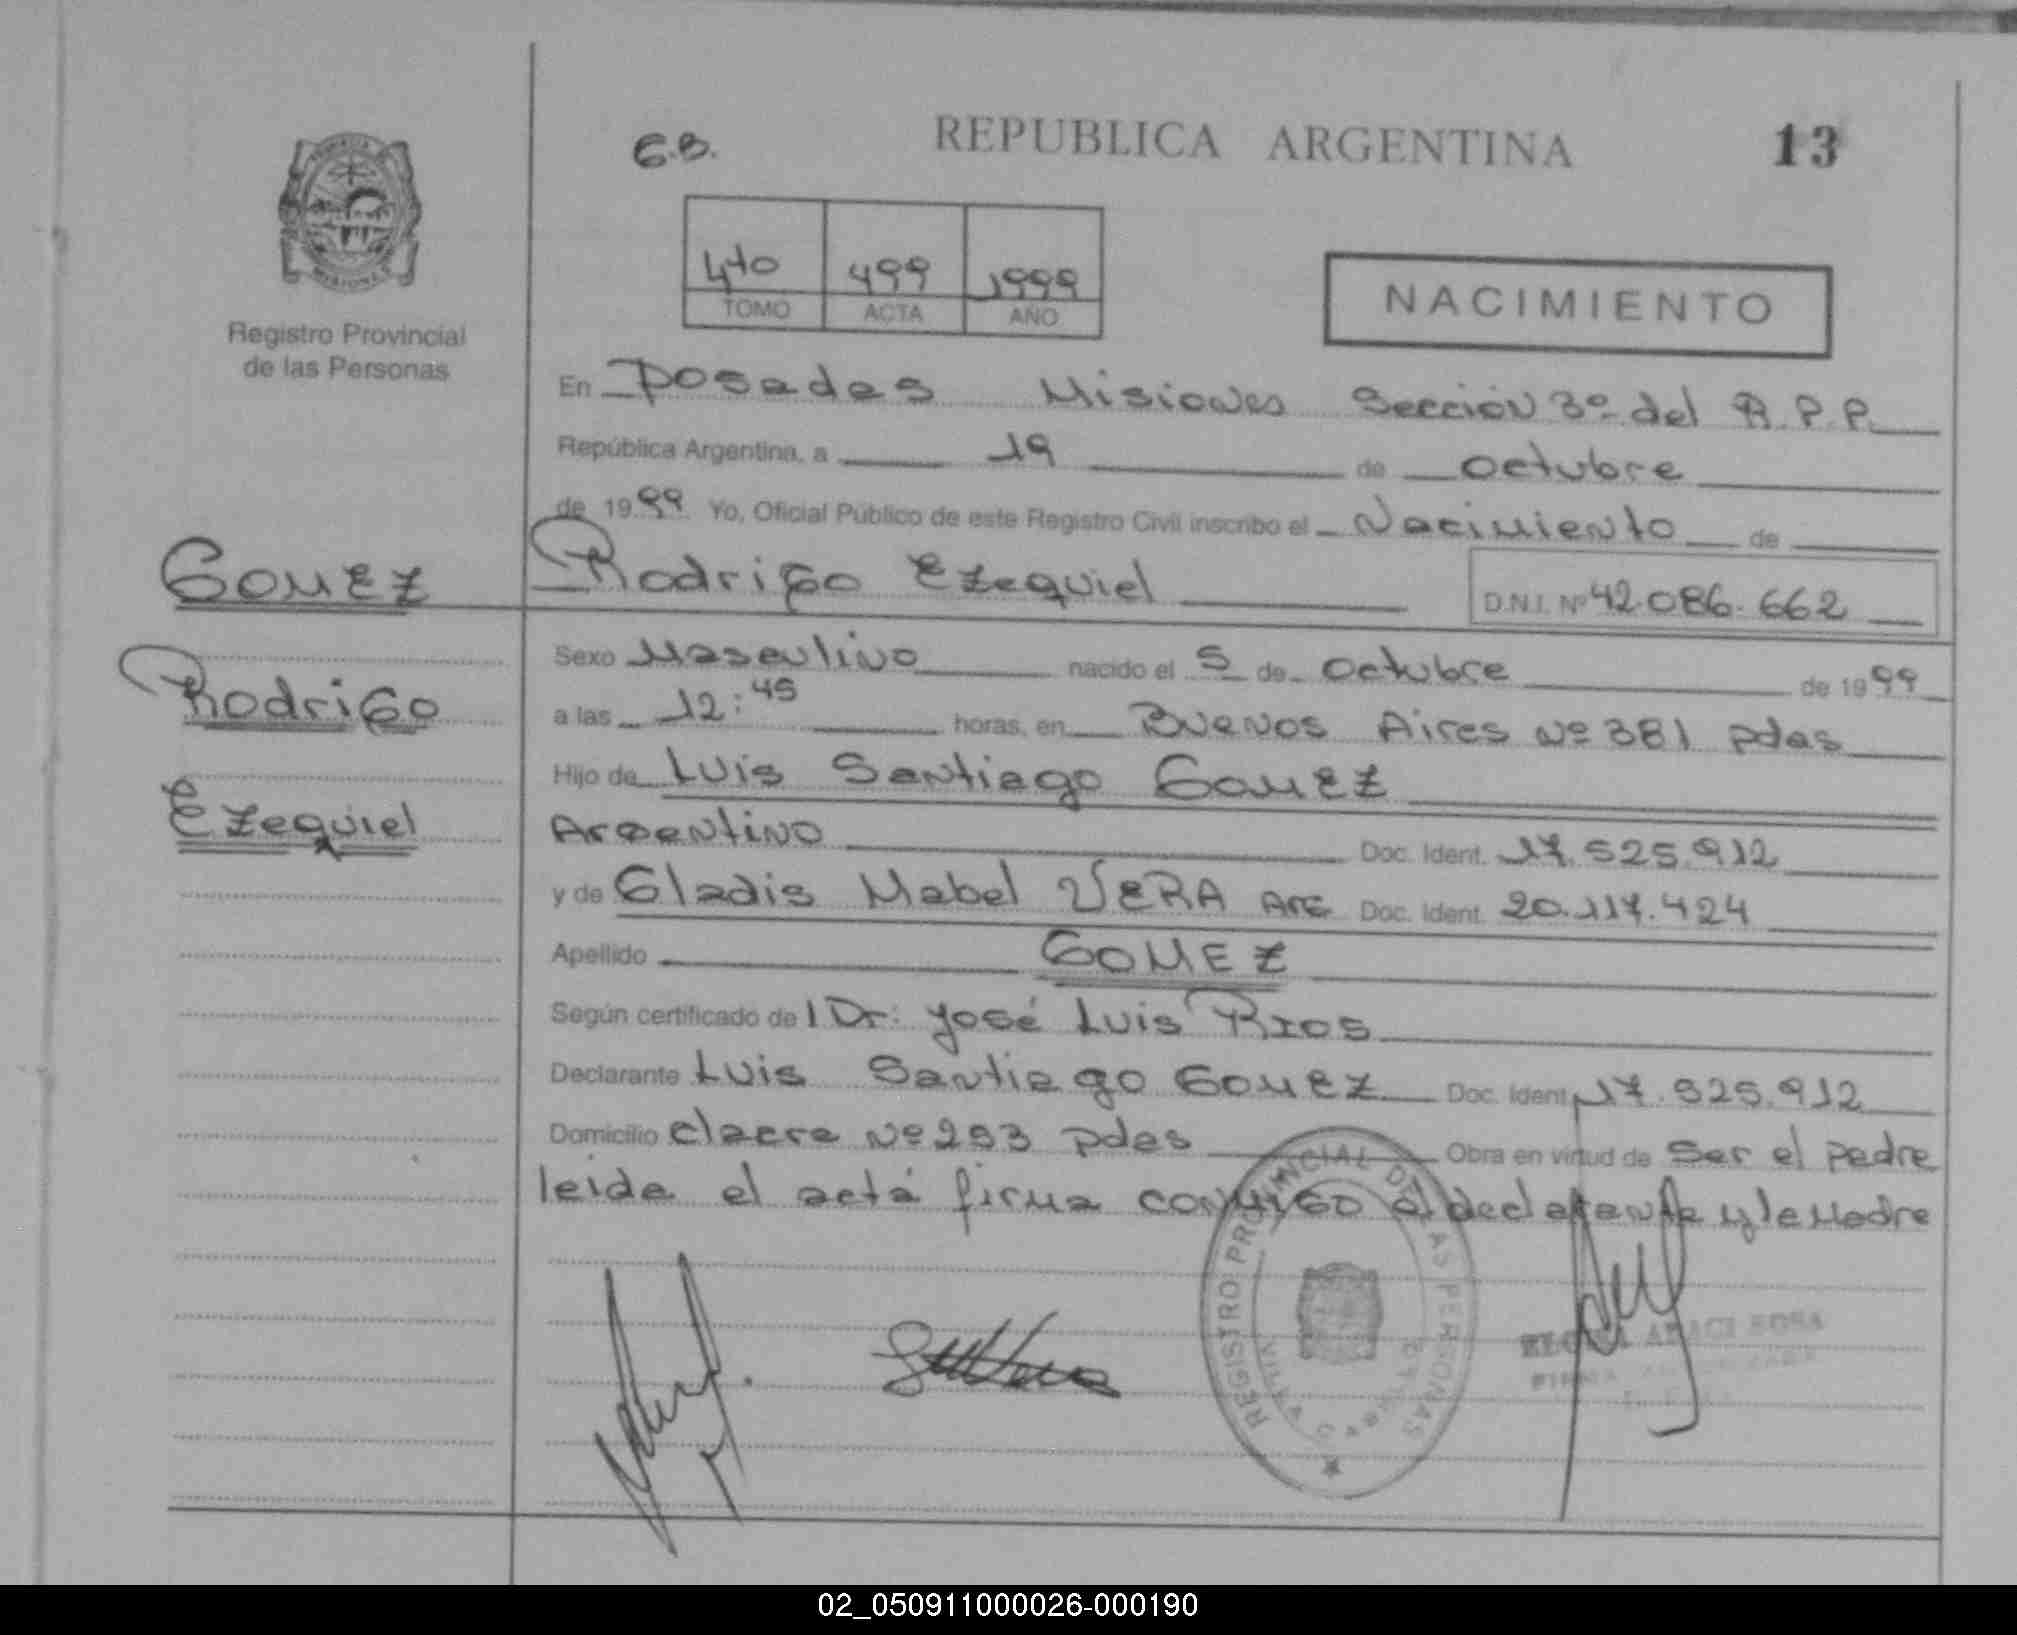 REPUBLICA ARGENTINA
13
G.B.
4to 499 1999
TOMO ACTA AÑO
NACIMIENTO
MISIONES
Registro Provincial
de las Personas
En Posadas Misiones Sección 3º del R.P.P.
República Argentina, a 19 de octubre
de 1999 Yo, Oficial Público de este Registro Civil inscribo el Nacimiento de
GOMEZ
Rodrigo Ezequiel
D.N.I. Nº 42.086.662
Rodrigo
Ezequiel
Sexo Masculino nacido el 5 de octubre de 1999
a las 12:45 horas, en Buenos Aires Nº 381 pdas
Hijo de Luis Santiago GOMEZ
Argentino Doc. Ident. 17.525.912
y de Gladis Mabel VERA Arg Doc. Ident. 20.117.424
Apellido GOMEZ
Según certificado del Dr: José Luis Rios
Declarante Luis Santiago GOMEZ Doc. Ident. 17.525.912
Domicilio Chacra Nº 253 pdas Obra en virtud de Ser el padre
leida el acta firma conmigo el declarante y la Madre
REGISTRO PROVINCIAL DE LAS PERSONAS
SOSA
FIRMA
02_050911000026-000190